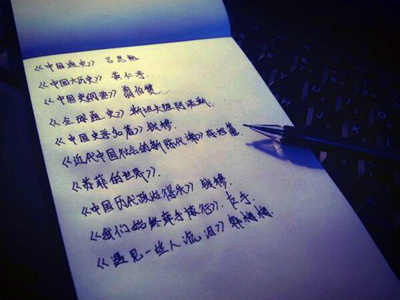 《中国通史》 吕思勉
《中国大历史》 黄仁宇.
《中国史纲要》 翦伯赞.
《全球通史》 斯塔夫里阿诺斯
《中国史学名著》钱穆.
《近代中国社会的新陈代谢》陈旭麓
《苏菲的世界》.
《中国历代政治得失》 钱穆.
《我们始终牵手旅行》.
《遇见一些人 流泪》 韩梅梅.